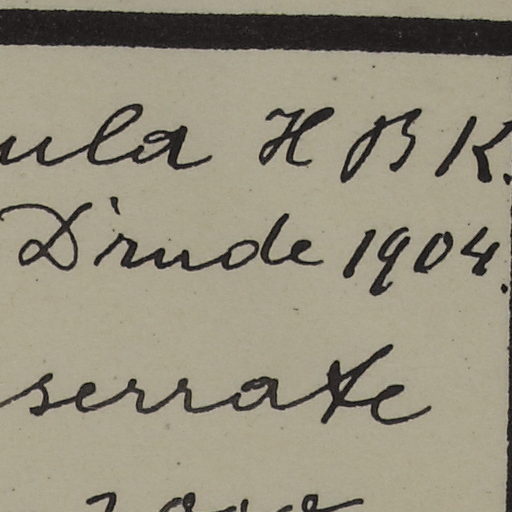 ula H B K.
Drude 1904.
serrate